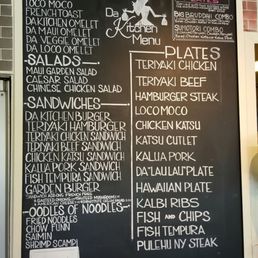 LOCO MOCO
FRENCH TOAST
DA KITCHEN OMELET
DA MAUI OMELET
DA VEGGIE OMELET
DA LOCO OMELET
SALADS
MAUI GARDEN SALAD
CAESAR SALAD
CHINESE CHICKEN SALAD
SANDWICHES
DA KITCHEN BURGER
TERIYAKI HAMBURGER
TERIYAKI CHICKEN SANDWICH
TERIYAKI BEEF SANDWICH
CHICKEN KATSU SANDWICH
KALUA PORK SANDWICH
FISH TEMPURA SANDWICH
GARDEN BURGER
OODLES OF NOODLES
FRIED NOODLES
CHOW FUNN
SAIMIN
SHRIMP SCAMPI
Da
Kitchen
Menu
BIG BRUDDAH COMBO
SUMOTORI COMBO
PLATES
TERIYAKI CHICKEN
TERIYAKI BEEF
HAMBURGER STEAK
LOCO MOCO
CHICKEN KATSU
KATSU CUTLET
KALUA PORK
DA'LAU LAU'PLATE
HAWAIIAN PLATE
KALBI RIBS
FISH AND CHIPS
FISH TEMPURA
PULEHU NY STEAK